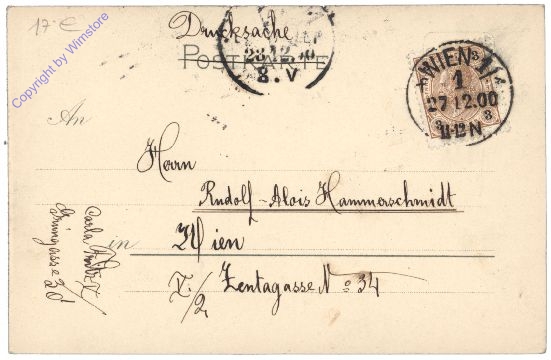 17.-€
Copyright by Wimstore
Drucksache
POSTKARTE
28 12 00
8. V
WIEN 1/1
1
27.12.00
11-12N
3 3
An
Herrn
Rudolf-Alois Hammerschmidt
in Wien
V./2 Zentagasse No 34
Carla
Grüngasse 30